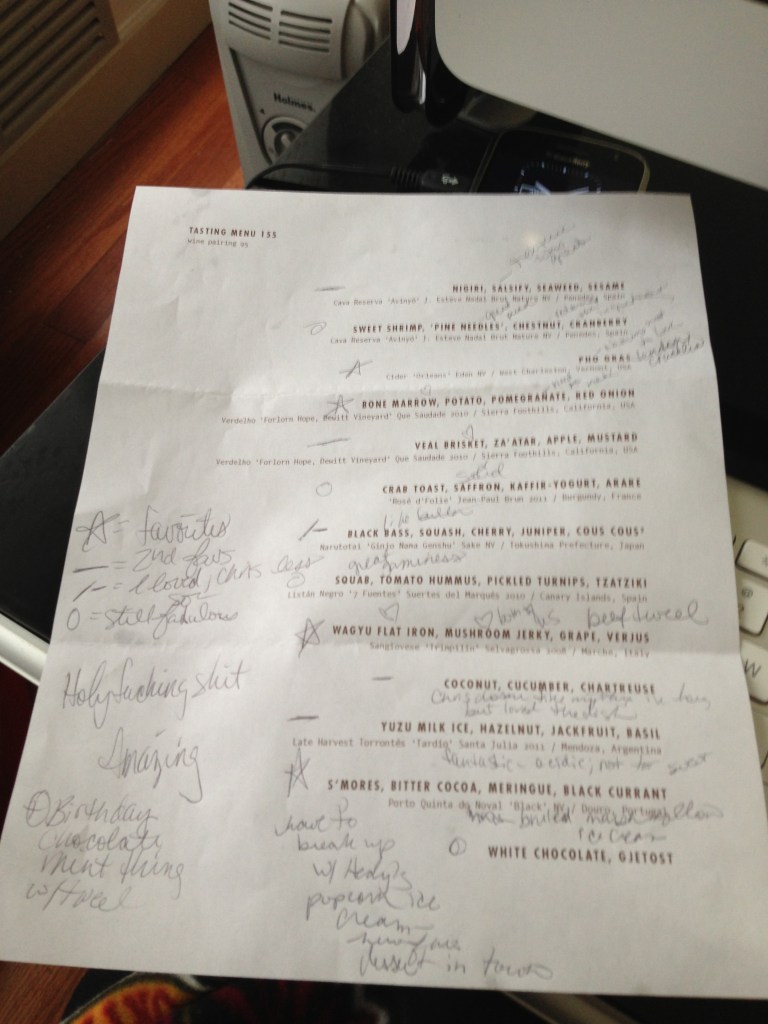 Holmes
TASTING MENU 155
wine pairing 95
NIGIRI, SALSIFY, SEAWEED, SESAME
Cava Reserva 'Avinyó' J. Esteve Nadal Brut Nature NV / Penedès, Spain
SWEET SHRIMP, 'PINE NEEDLES', CHESTNUT, CRANBERRY
Cava Reserva 'Avinyó' J. Esteve Nadal Brut Nature NV / Penedès, Spain
PHO GRAS
Cider 'Orleans' Eden NV / West Charleston, Vermont, USA
BONE MARROW, POTATO, POMEGRANATE, RED ONION
Verdelho 'Forlorn Hope, Dewitt Vineyard' Que Saudade 2010 / Sierra Foothills, California, USA
VEAL BRISKET, ZA'ATAR, APPLE, MUSTARD
Verdelho 'Forlorn Hope, Dewitt Vineyard' Que Saudade 2010 / Sierra Foothills, California, USA
solid
CRAB TOAST, SAFFRON, KAFFIR-YOGURT, ARARE
'Rosé d'Folie' Jean-Paul Brun 2011 / Burgundy, France
like butter
BLACK BASS, SQUASH, CHERRY, JUNIPER, COUS COUS²
Narutotai 'Ginjo Nama Genshu' Sake NV / Tokushima Prefecture, Japan
great
SQUAB, TOMATO HUMMUS, PICKLED TURNIPS, TZATZIKI
Listán Negro '7 Fuentes' Suertes del Marqués 2010 / Canary Islands, Spain
beef tweel
WAGYU FLAT IRON, MUSHROOM JERKY, GRAPE, VERJUS
Sangiovese 'Trimpilin' Selvagrossa 2008 / Marche, Italy
COCONUT, CUCUMBER, CHARTREUSE
but loved the dish
YUZU MILK ICE, HAZELNUT, JACKFRUIT, BASIL
Late Harvest Torrontés 'Tardío' Santa Julia 2011 / Mendoza, Argentina
fantastic - acidic, not too sweet
S'MORES, BITTER COCOA, MERINGUE, BLACK CURRANT
Porto Quinta do Noval 'Black' NV / Douro, Portugal
ice cream
WHITE CHOCOLATE, GJETOST
☆ = favourites
— = 2nd favs
= I loved, Chris less so
O = still fabulous
Holy fucking shit
Amazing
Birthday
chocolate
mint thing
w/tweel
have to
break up
w/ Heidi's
popcorn ice
cream
new fave
dessert in town